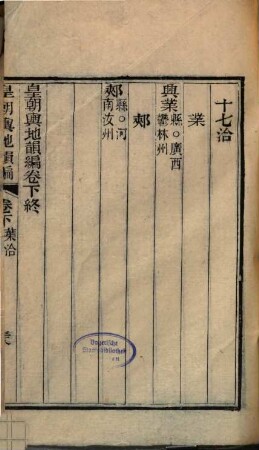 十七洽
業
興業縣○廣西
鬱林州
郟
郟縣○河
南汝州
皇朝輿地韻編卷下終
皇朝輿地韻編
卷下業洽
Bayerische
Staatsbibliothek